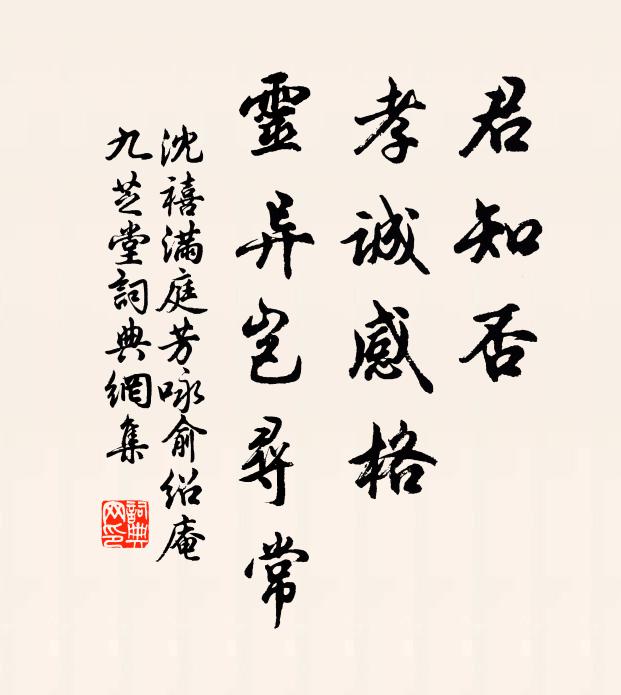 君知否
孝诚感格
靈异岂尋常
沈禧满庭芳咏俞绍庵
九芝堂詞典網集
詞典网印